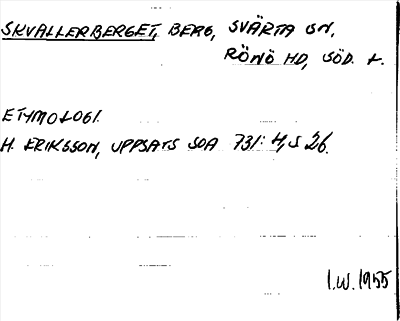 SKVALLERBERGET, BERG, SVÄRTA SN,
RÖNÖ HD, SÖD. L.
ETYMOLOGI.
H. ERIKSSON, UPPSATS SOA 731:4, S 26.
I.W. 1955